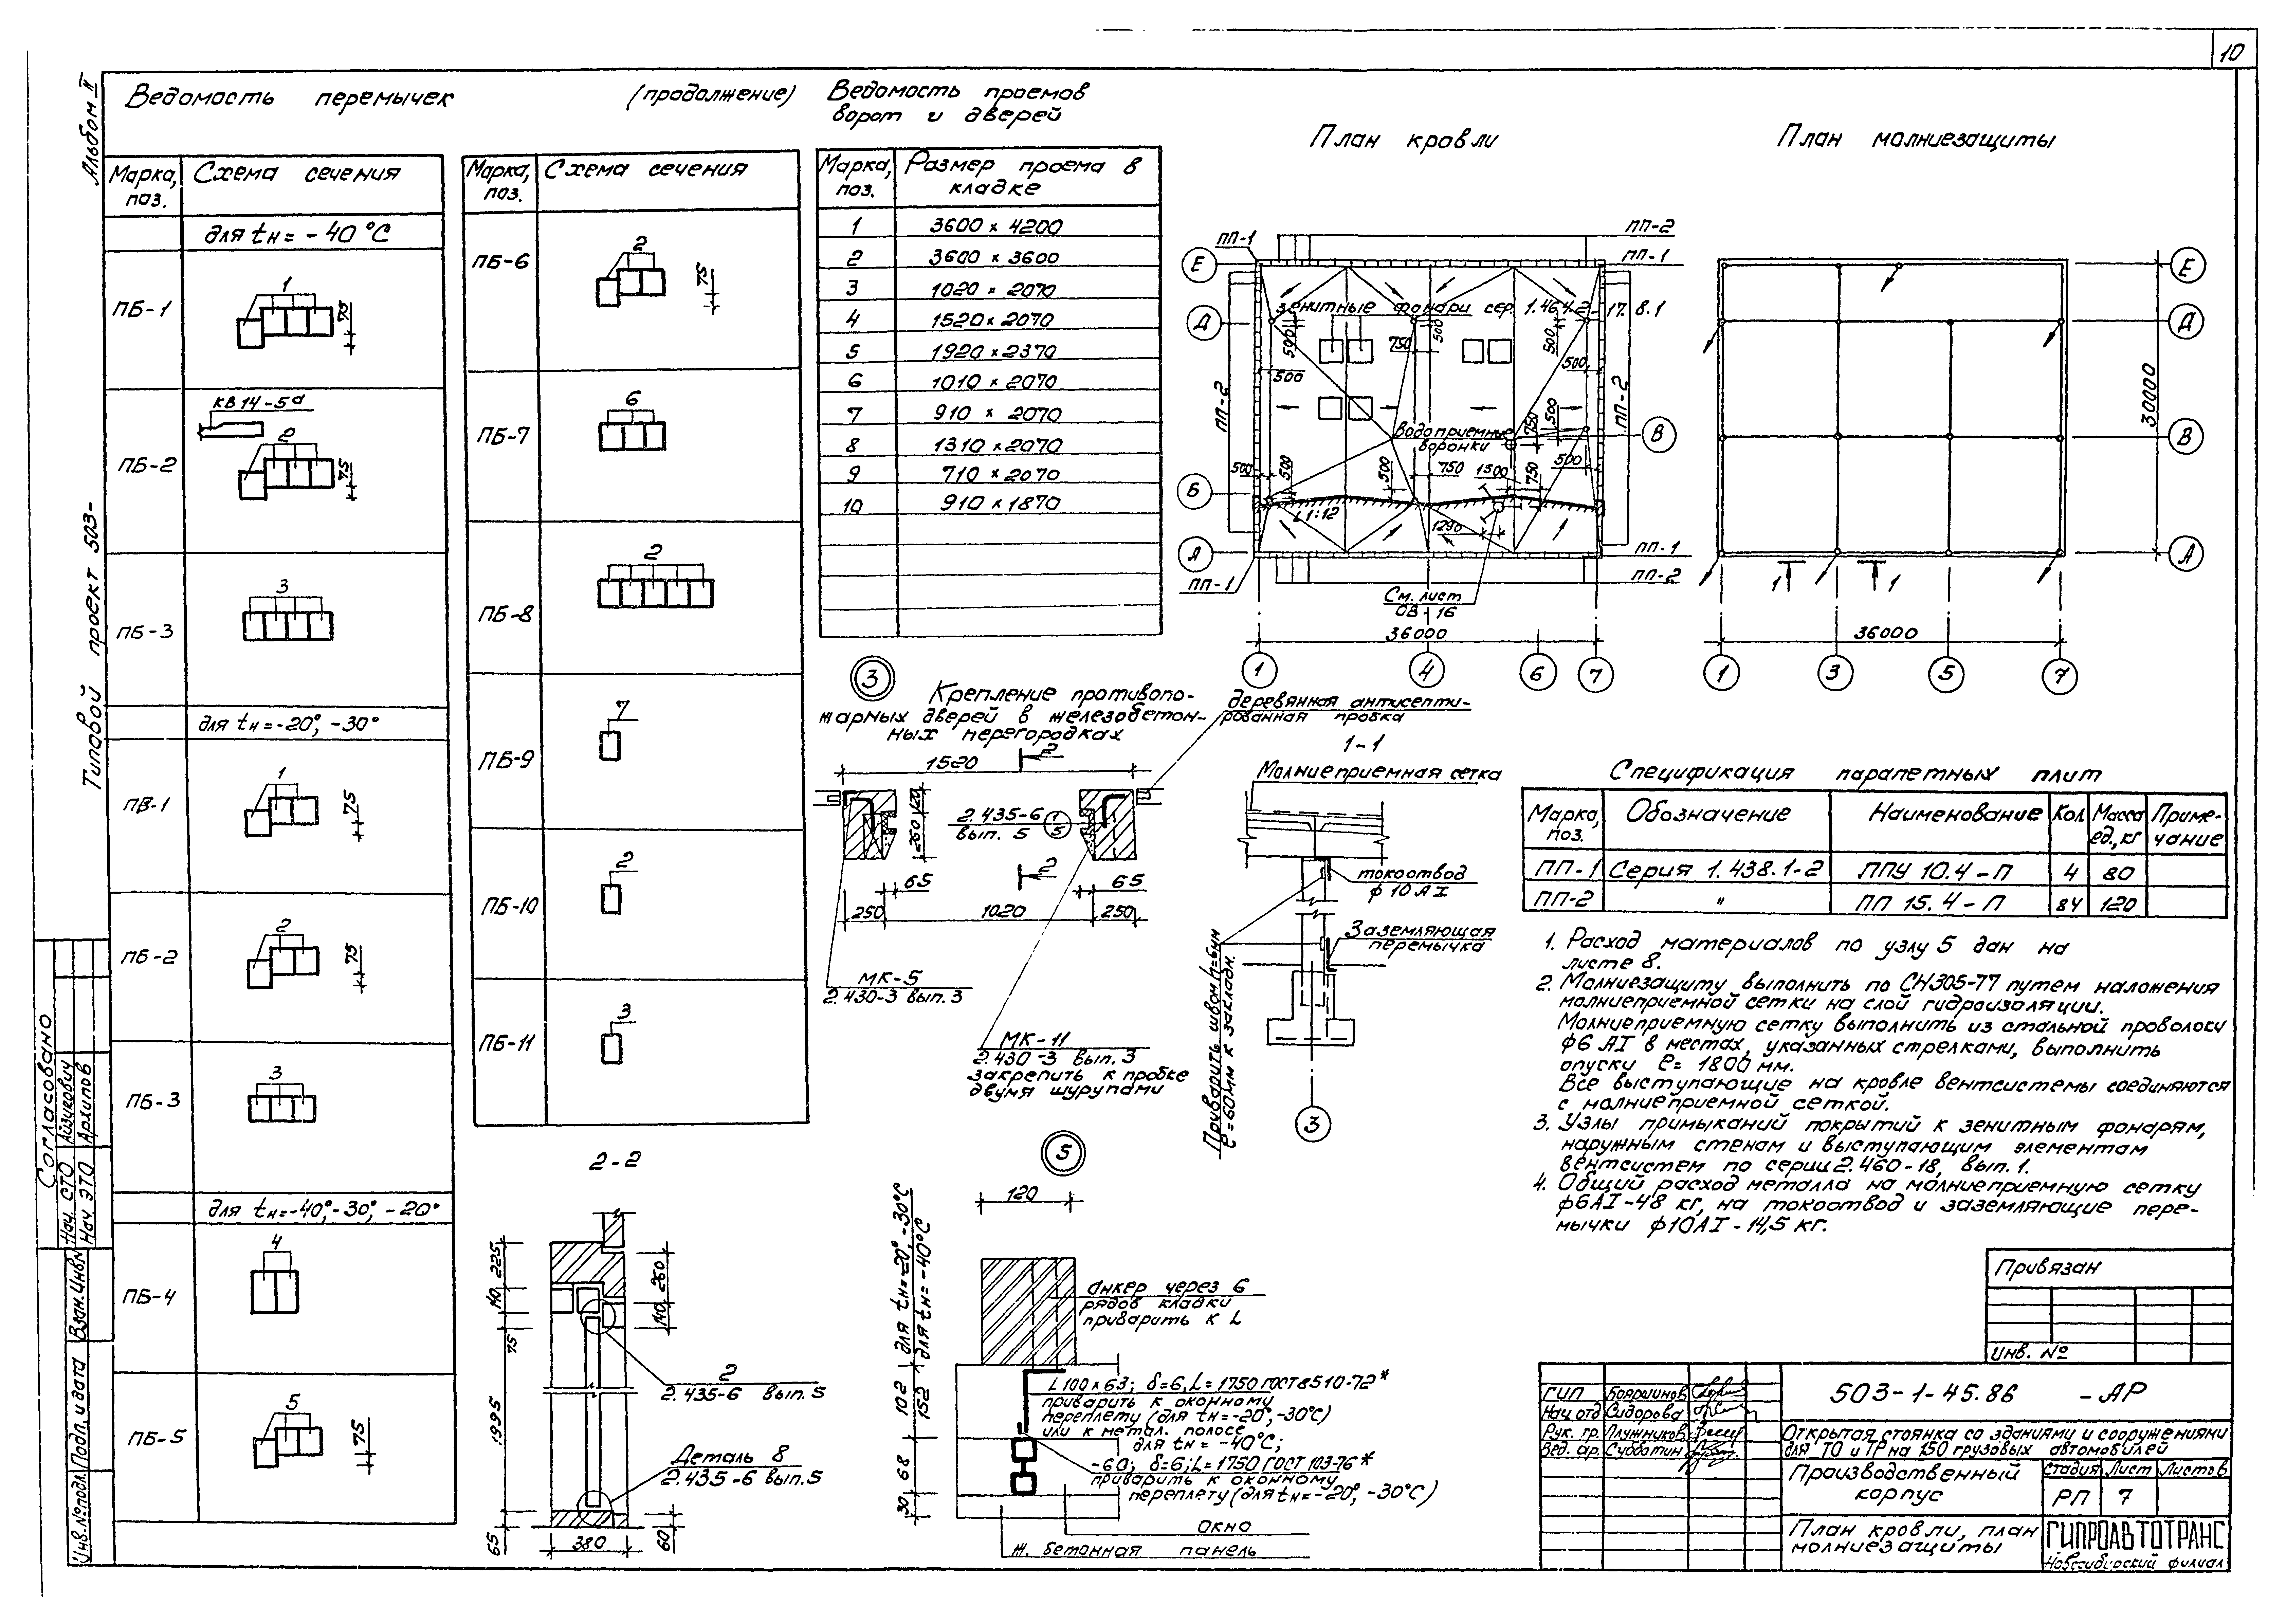 10
Альбом II
Типовой проект 503-
Ведомость перемычек (продолжение)
Марка, поз. Схема сечения
для tн = -40°С
ПБ-1
1
75
ПБ-2
КВ 14-5а
2
75
ПБ-3
3
для tн = -20°, -30°
ПВ-1
1
75
ПБ-2
2
75
ПБ-3
3
для tн = -40°, -30°, -20°
ПБ-4
4
ПБ-5
5
75
Марка, поз. Схема сечения
ПБ-6
2
75
ПБ-7
6
ПБ-8
2
ПБ-9
7
ПБ-10
2
ПБ-11
3
Ведомость проемов
ворот и дверей
Марка, поз. Размер проема в кладке
1 3600 x 4200
2 3600 x 3600
3 1020 x 2070
4 1520 x 2070
5 1920 x 2370
6 1010 x 2070
7 910 x 2070
8 1310 x 2070
9 710 x 2070
10 910 x 1870
План кровли
ПП-1 ПП-2
ПП-1
Е
Д
Б
А
В
зенитные фонари сер. 1.464.2-17. В.1
500 750 500 500 500
500
ПП-2
ПП-2
Водоприемные
воронки
750 500
500 500 500 750 1500 750 500
i 1:12
1290
ПП-1
ПП-2
ПП-1
См. лист
ОВ-16
36000
1 4 6 7
План молниезащиты
Е
Д
В
А
30000
1 1
36000
1 3 5 7
3
Крепление противопо-
жарных дверей в железобетон-
ных перегородках
деревянная антисепти-
рованная пробка
2
1520
120
260
2.435-6
вып. 5
1
5
2
65 65
250 1020 250
МК-5
2.430-3 вып. 3
МК-11
2.430-3 вып. 3
закрепить к пробке
двумя шурупами
1-1
Молниеприемная сетка
токоотвод
ф 10 АI
Заземляющая
перемычка
Приварить швом h=6мм
ℓ=60мм к закладн.
3
Спецификация парапетных плит
Марка, поз. Обозначение Наименование Кол Масса ед., кг Приме-чание
ПП-1 Серия 1.438.1-2 ППУ 10.4-П 4 80
ПП-2 " ПП 15.4-П 84 120
1. Расход материалов по узлу 5 дан на
листе 8.
2. Молниезащиту выполнить по СН305-77 путем наложения
молниеприемной сетки на слой гидроизоляции.
Молниеприемную сетку выполнить из стальной проволоки
ф6 АI в местах, указанных стрелками, выполнить
опуски ℓ= 1800 мм.
Все выступающие на кровле вентсистемы соединяются
с молниеприемной сеткой.
3. Узлы примыканий покрытий к зенитным фонарям,
наружным стенам и выступающим элементам
вентсистем по серии 2.460-18, вып. 1.
4. Общий расход металла на молниеприемную сетку
ф6АI-48 кг, на токоотвод и заземляющие пере-
мычки ф10АI-14,5 кг.
2-2
225
140
75
1995
65
260
140
380
60
2
2.435-6 вып. 5
Деталь 8
2.435-6 вып. 5
5
120
для tн=-20°, -30°С
для tн=-40°С
102
152
68
30
Анкер через 6
рядов кладки
приварить к L
L 100 x 63; δ=6, L=1750 ГОСТ 8510-72*
приварить к оконному
переплету (для tн=-20°, -30°С)
или к метал. полосе
для tн = -40°С;
-60; δ=6; L=1750 ГОСТ 103-76*
приварить к оконному
переплету (для tн=-20°, -30°С)
Окно
Ж. бетонная панель
Согласовано
Нач. СТО Айзикович
Нач. ЭТО Архипов
Взам. инв. N
Подп. и дата
Инв. № подл.
Привязан
Инв. №
ГИП Бояршинов
Нач. отд Сидорова
Рук. гр. Плужников
Вед. ар. Субботин
503-1-45.86 -АР
Открытая стоянка со зданиями и сооружениями
для ТО и ТР на 150 грузовых автомобилей
Производственный
корпус
стадия Лист Листов
РП 7
План кровли, план
молниезащиты
ГИПРОАВТОТРАНС
Новосибирский филиал